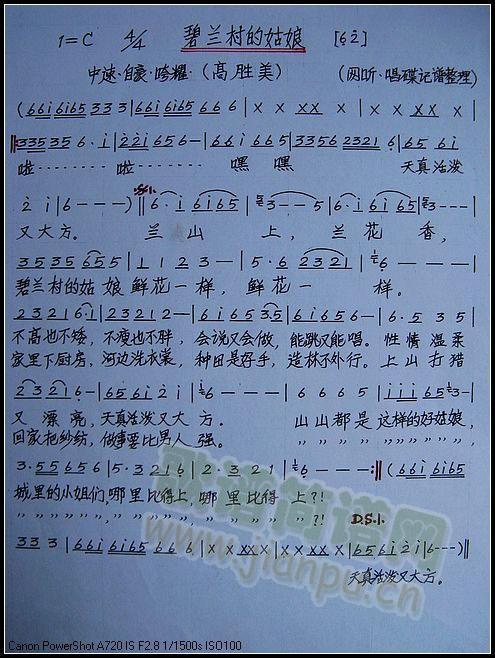 1=C 4/4 碧兰村的姑娘 [6 2]
中速·自豪·夸耀·(高胜美) (网听·唱碟记谱整理)
(6 6 i 6 i 6 5 3 3 3 | 6 6 i 6 i 6 5 6 6 6 | X X X X X | X X X X X |
3 3 5 3 5 6 · i | 2 2 i 6 5 6 - | 6 6 i 6 6 5 | 3 3 5 6 2 3 2 1 6 | 6 5 6 i
啦········ 啦········ 嘿 嘿 天真活泼
2 i | 6 - - - ) ‖ 6 · i 6 i 6 5 | 3 - - 5 | 6 · i 6 i 6 5 | 3 - - - |
又大方。 兰 山 上, 兰 花 香,
3 5 3 5 6 5 5 | 1 1 2 3 - | 5 · 6 2 3 2 1 | 6 - - - |
碧兰村的姑 娘 鲜花一 样, 鲜花一 样。
2 3 2 1 6 6 · 1 | 2 3 2 1 2 - | 6 i 6 5 3 · 5 | 6 i 6 5 6 - | 6 · 5 3 5
不高也不矮, 不瘦也不胖, 会说又会做, 能跳又能唱。 性情 温柔
家里下厨房, 河边洗衣裳, 种田是好手, 造林不外行。 上山打猎
2 3 2 1 6 - | 6 5 6 i 2 i | 6 - - - | 6 6 6 5 | i i i 6 5 3 - |
又 漂 亮, 天真活泼又大 方. 山山都是 这样的好姑娘,
回家把纱纺, 做事要比男人 强。 〃 〃 〃 〃 〃 〃 〃 〃 〃 〃
3 · 5 5 6 5 6 | 5 · 3 2 1 6 | 2 · 3 2 1 | 6 - - :‖ (6 6 i 6 i 6 5
城里的小姐们, 哪里比得上, 哪 里 比得 上?!
〃 〃 〃 〃 〃 〃, 〃 〃 〃 〃 〃, 〃 〃 〃 〃 〃?! D.S.1.
3 3 3 | 6 6 i 6 i 6 5 6 6 6 | X X X X X | X X X X X | 6 5 6 i 2 i | 6 - - - ) ‖
天真活泼又大方.
歌谱简谱网
www.jianpu.cn
Canon PowerShot A720 IS F2.8 1/1500s ISO100